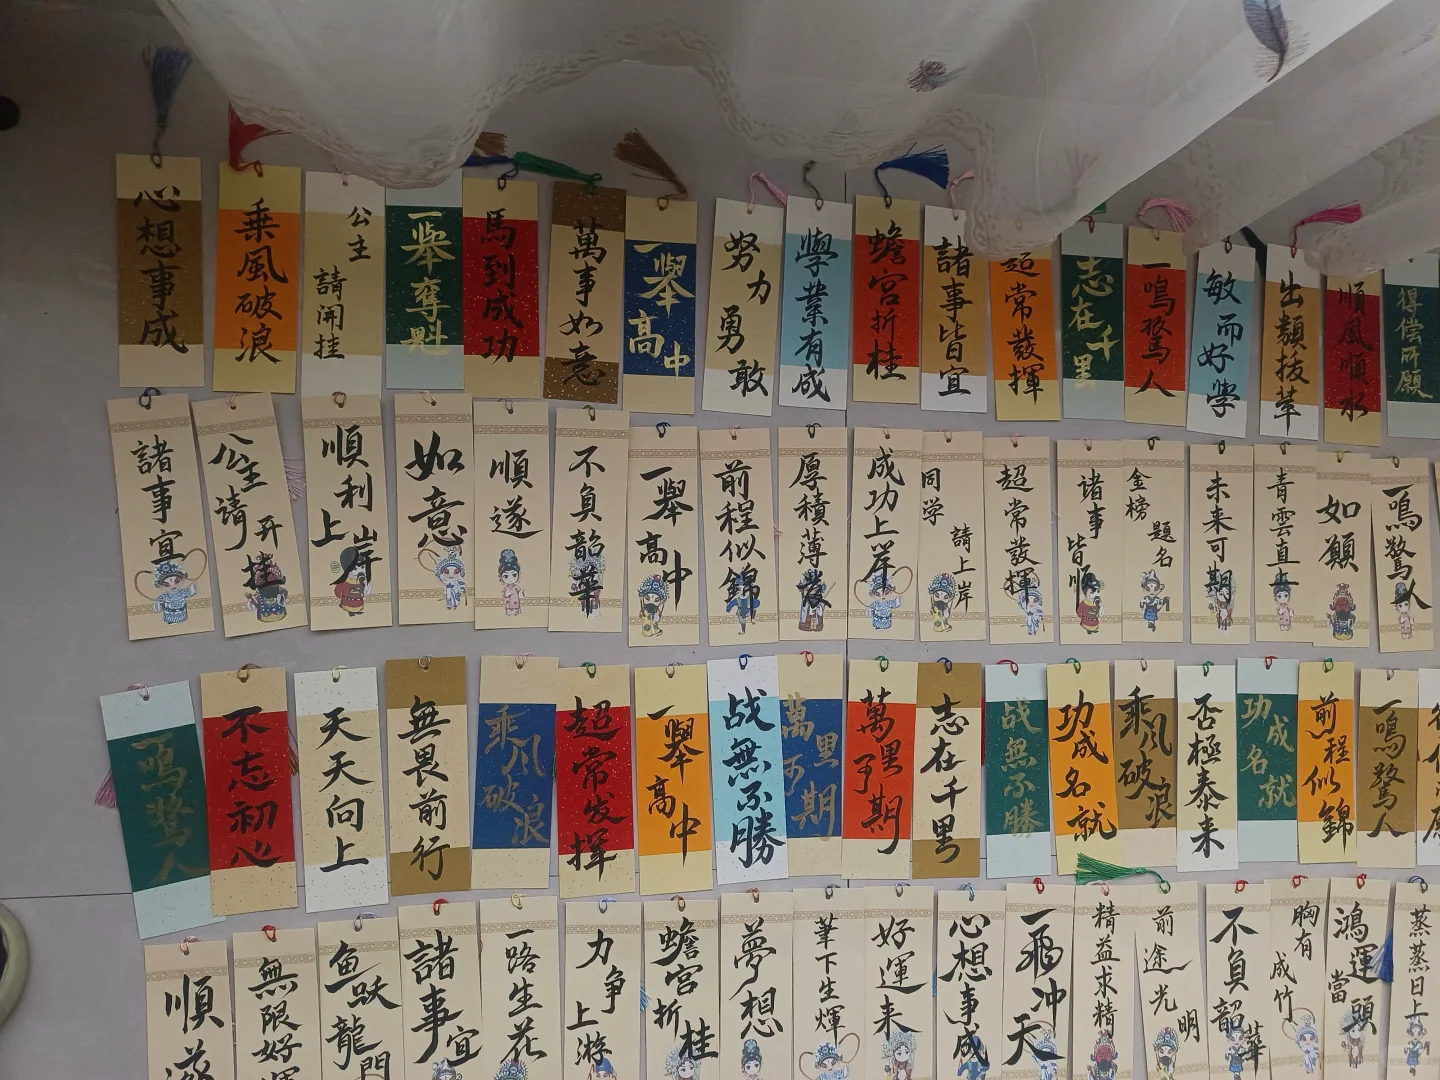 心想事成
乘風破浪
公主
請開挂
一舉奪魁
馬到成功
萬事如意
一舉高中
努力勇敢
學業有成
蟾宮折桂
諸事皆宜
超常發揮
志在千里
一鳴驚人
敏而好學
出類拔萃
順風順水
得偿所願
諸事宜
公主請开挂
順利上岸
如意
順遂
不負韶華
一舉高中
前程似錦
厚積薄發
成功上岸
同学
請上岸
超常發揮
诸事皆順
金榜
題名
未来可期
青雲直上
如願
一鳴驚人
一鳴驚人
不忘初心
天天向上
無畏前行
乘风破浪
超常发揮
一舉高中
战無不勝
萬里可期
萬里可期
志在千里
战無不勝
功成名就
乘风破浪
否極泰来
功成名就
前程似錦
一鳴驚人
順遂
無限好
鱼跃龍門
諸事宜
一路生花
力争上游
蟾宮折桂
夢想
筆下生輝
好運来
心想事成
一飛冲天
精益求精
前途光明
不負韶華
胸有成竹
鴻運當頭
蒸蒸日上